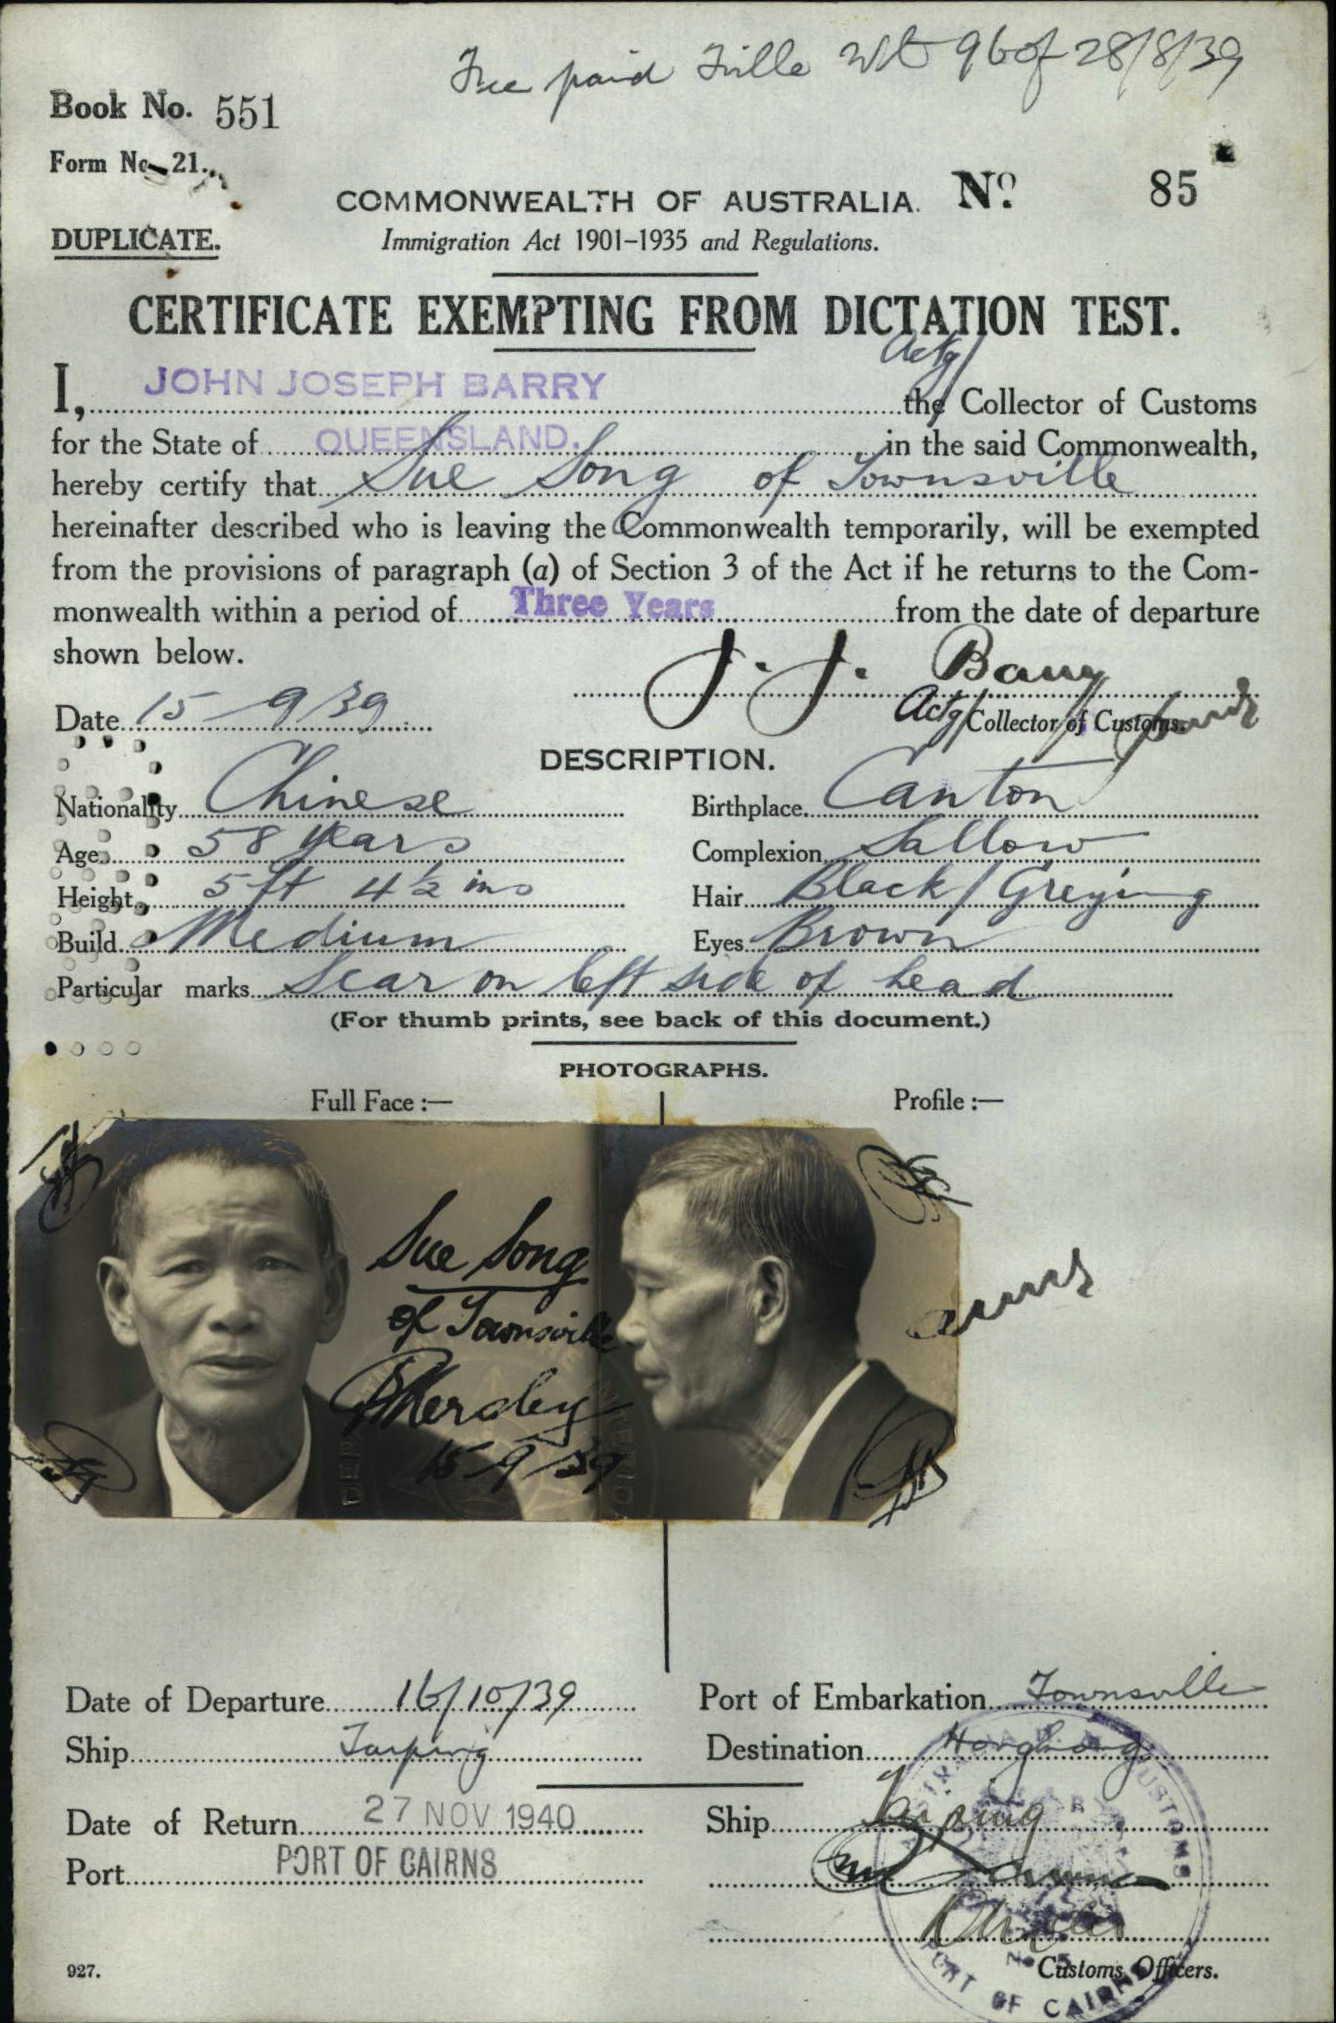 Fee paid Tville 96 of 28/8/39
Book No. 551
Form No. 21.
COMMONWEALTH OF AUSTRALIA. No. 85
DUPLICATE.
Immigration Act 1901-1935 and Regulations.
CERTIFICATE EXEMPTING FROM DICTATION TEST.
Actg/
I, JOHN JOSEPH BARRY the Collector of Customs
for the State of QUEENSLAND. in the said Commonwealth,
hereby certify that Sue Song of Townsville
hereinafter described who is leaving the Commonwealth temporarily, will be exempted
from the provisions of paragraph (a) of Section 3 of the Act if he returns to the Com-
monwealth within a period of Three Years from the date of departure
shown below.
J. J. Barry
Date 15-9/39
Actg/ Collector of Customs.
DESCRIPTION.
Nationality Chinese Birthplace Canton
Age 58 years Complexion Sallow
Height 5 ft 4 ½ ins Hair Black/Greying
Build Medium Eyes Brown
Particular marks Scar on left side of head
(For thumb prints, see back of this document.)
PHOTOGRAPHS.
Full Face :— Profile :—
Sue Song
of Townsville
15-9/39
Date of Departure 16/10/39 Port of Embarkation Townsville
Ship Taiping Destination Hongkong
Date of Return 27 NOV 1940 Ship Taiping
Port PORT OF CAIRNS
927.
Customs Officers.
PORT OF CAIRNS